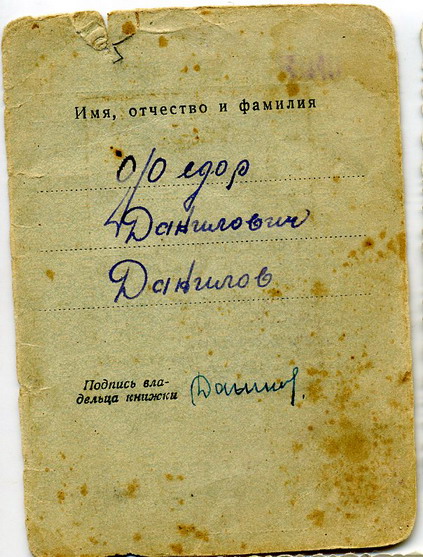 Имя, отчество и фамилия
Федор
Данилович
Данилов
Подпись вла-
дельца книжки Данилов